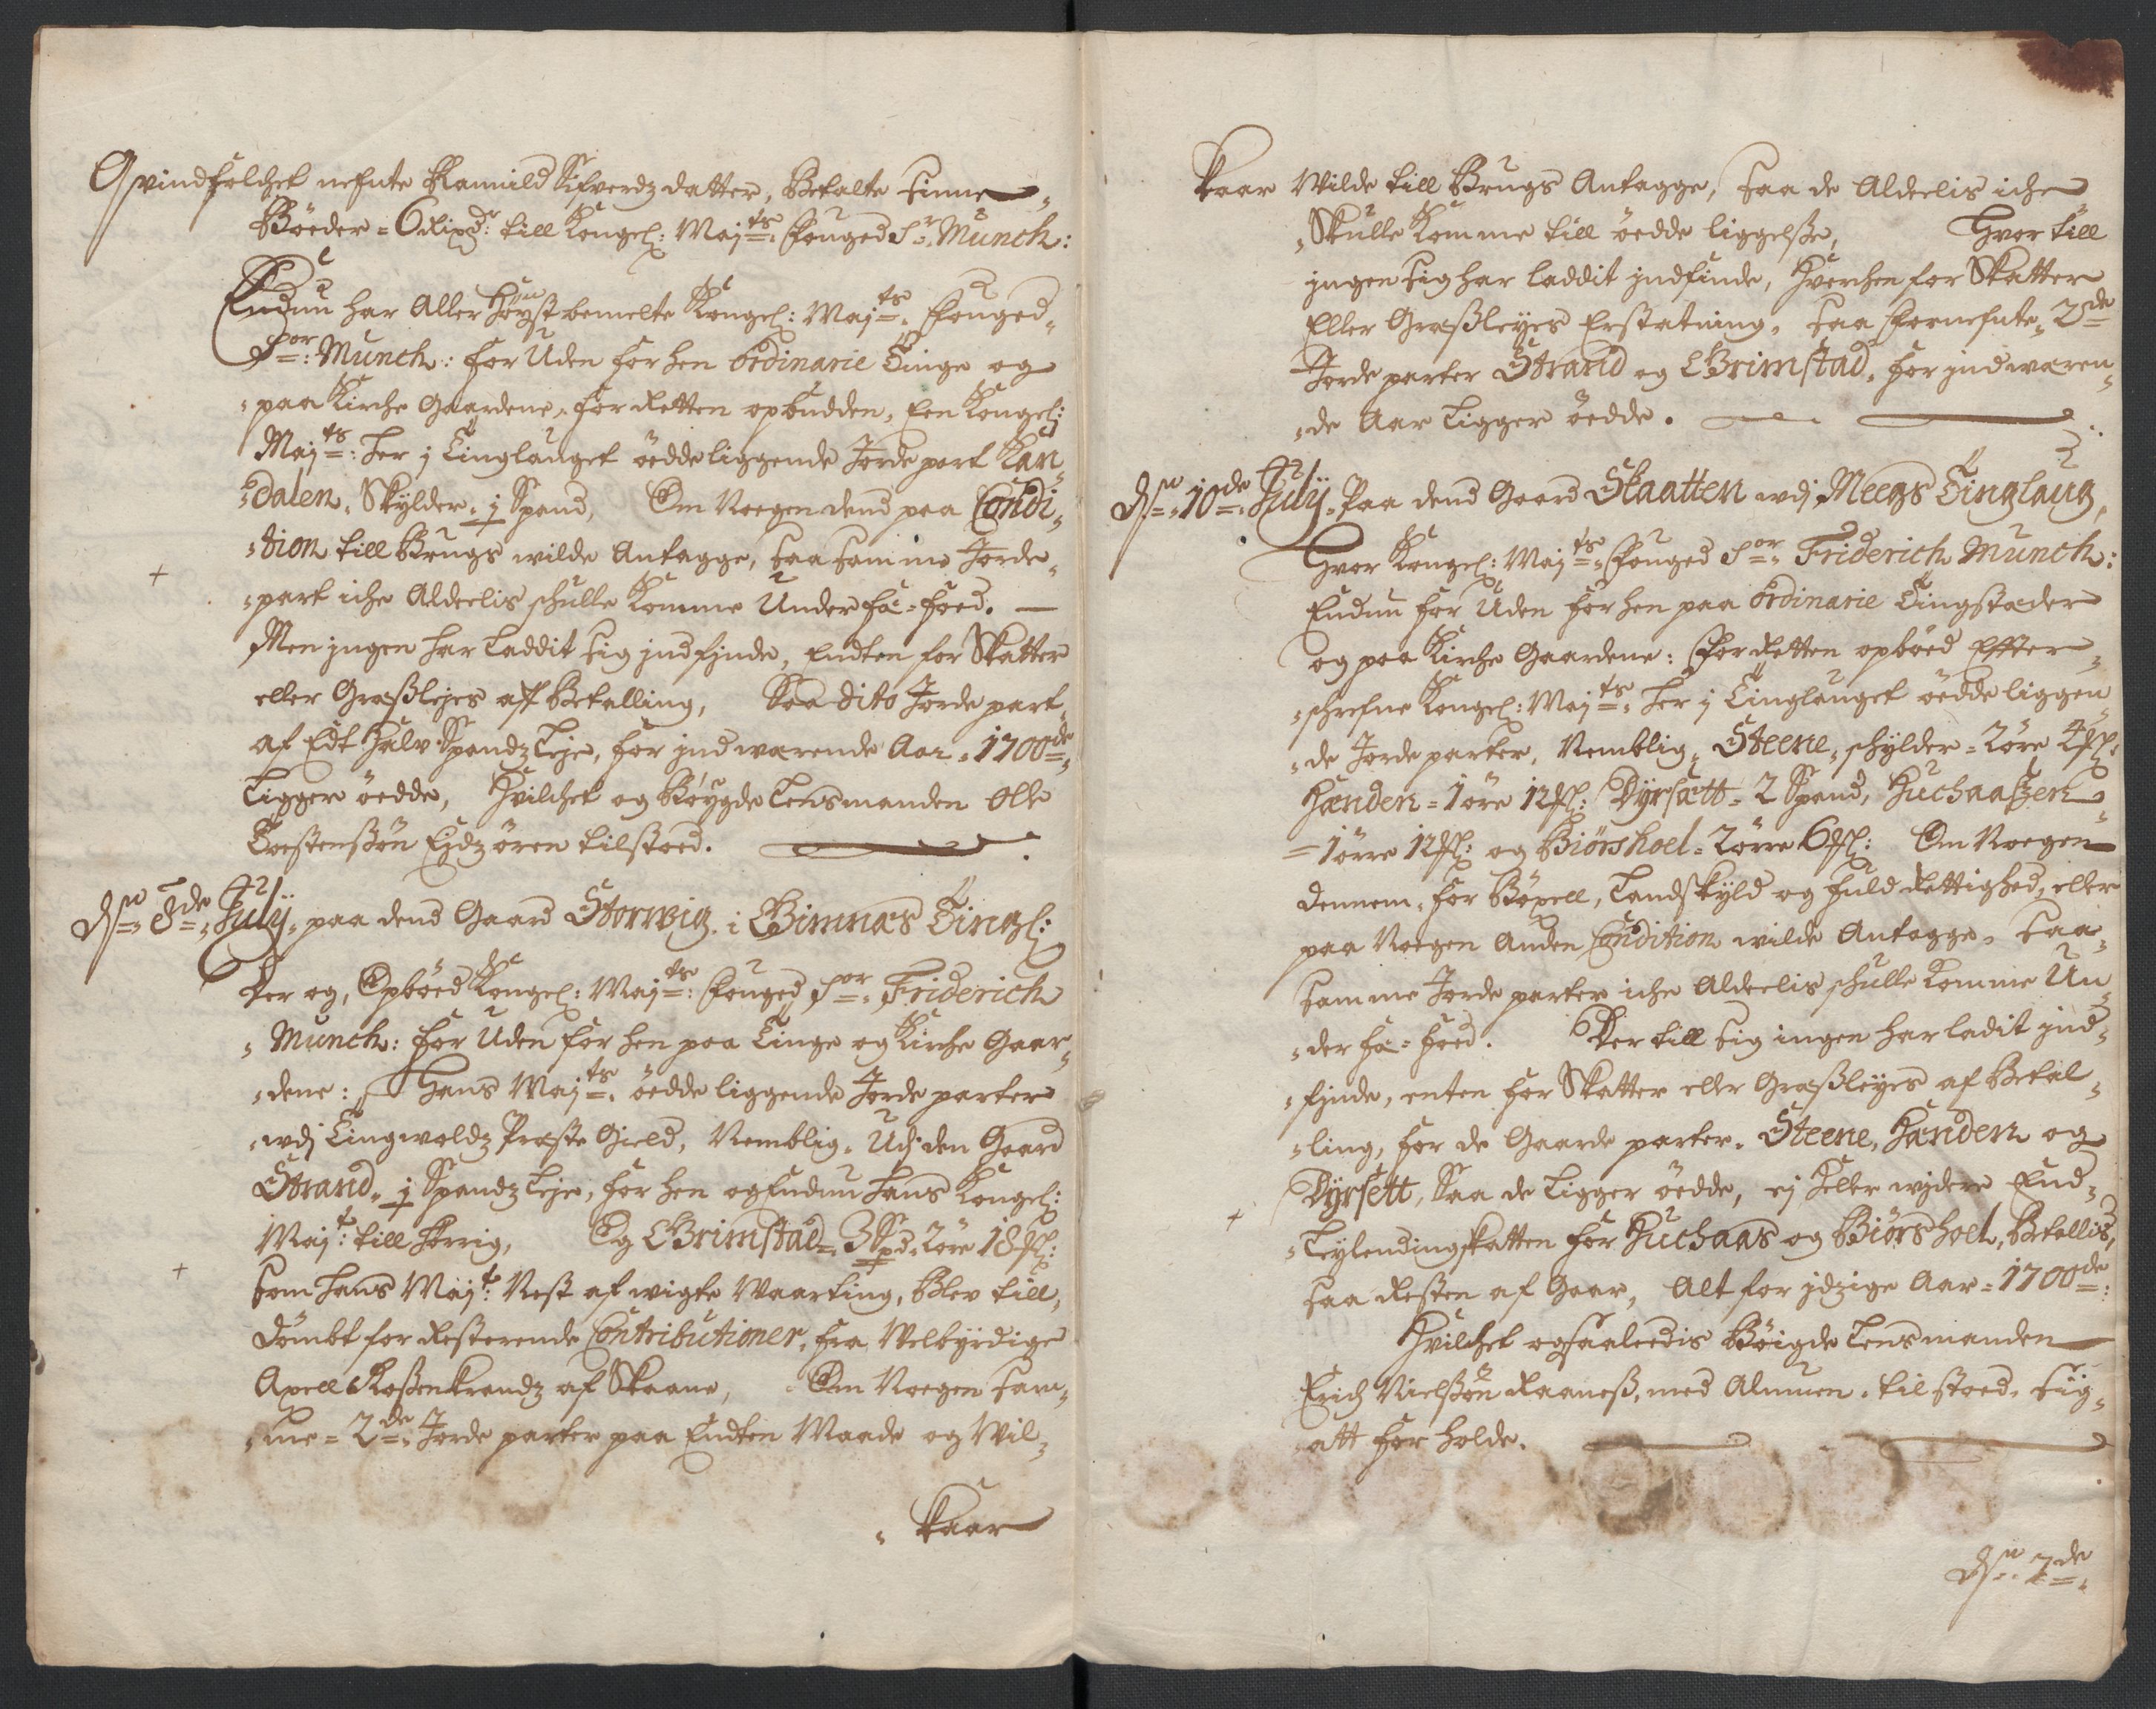 Qvindfolchet nefnte Ramild Sifverdz datter, Betalte sinne
Bøeder = 6 Rixd: till Kongel: Maj:ts Fouged Sr. Munch:
Endnu har Aller Høyst bemelte Kongel: Maj:ts Fouged
Sor: Munch: for Uden for hen ordinarie Tinge og
paa Kirche Gaardene, for Retten opbudden, Een Kongel:
Maj:ts: her j Tinglauget øedde liggende Jorde part Kan
dalen, Skylder = j Spand, Om Noegen dend paa Condi
tion till Brugs wilde Antagge, saa samme Jorde
part iche Aldeelis schulle Komme Under fæ = foed. —
Men jngen har laddit sig jndfinde, Endten for Skatter
eller Graßlejes aff Betalling, Saa dito Jorde part
af Edt Halv Spandz leje, for jndwærende Aar = 1700de
Ligger øedde, Hvilchet og Bøygde Lensmanden Olle
Torstenßøn Ejdzøren tilstoed.
Dn. 8de July, paa dend Gaard Storwig i Gimnæs Tingl:
Der og, Opbøed Kongel: Maj:ts: Fouged Sor. Friderich
Munch: for Uden for hen paa Tinge og Kirche Gaar
dene: Hans Maj:ts. øedde liggende Jorde parter
wdj Tingwoldz Præste Gield, Nemblig. Udj den Gaard
Strand, j Spandz leje, for hen og Endnu Hans Kongel:
Maj:t: till hørrig, Og Grimstad = 3 Spd: 2 øre 18 ßl:
som Hans Maj:t Nest afwigte Waarting, Blev till
Dømbt for Resterende Contributioner, fra Welbyrdige
Axell Roßenkrandz af Skaane, Om Noegen sam
me = 2de Jorde parter paa Endten Maade og Wil
kaar
kaar Wilde till Brugs Antagge, saa de Aldeelis iche
Skulle Komme till øedde liggelße, Hvor till
jngen sig har laddit jndfinde, Hverchen for Skatter
Eller Graßleyes Erstatning, saa fornefnte 2de
Jorde parter Strand og Grimstad, for jndwæren
de Aar Ligger øedde.
Dn. 10de July. Paa dend Gaard Skaatten wdj Meegs Tinglaug,
Hvor Kongel: Maj:ts Fouged Sor. Friderich Munch:
Endnu for Uden for hen paa ordinarie Tingstæder
og paa Kirche Gaardene: for Retten opbøed Effter
schrefne Kongel: Maj:ts her j Tinglauget øedde liggen
de Jorde parter, Nemblig, Steene, schylder = 2 øre 4 ßl:
Hænden = 1 øre 12 ßl: Dyrsætt = 2 Spand, Huchaaßen
= 1 ørre 12 ßl: og Biørshoel = 2 ørre 6 ßl: Om Noegen
dennem, for Bøxell, Landskyld og fuld Rettighed, eller
paa Noegen Anden Condition wilde Antagge, saa
samme Jorde parter iche Aldeelis schulle Komme Un
der fæ = foed. Der till sig ingen har ladit jnd
finde, enten for Skatter eller Graßleyes af Betal
ling, for de Gaarde parter, Steene, Hænden og
Dyrsett, Saa de Ligger øedde, ej heller wydere End
Leylendingskatten for Huchaas og Biørshoel, Betallis,
saa Resten af Gaar, Alt for jdzige Aar = 1700de:
Hvilchet ogsaaledis Bøigde Lensmanden
Erich Nielßøn Raaneß, med Almuen tilstoed, sig
att for holde.
Dn. 7de